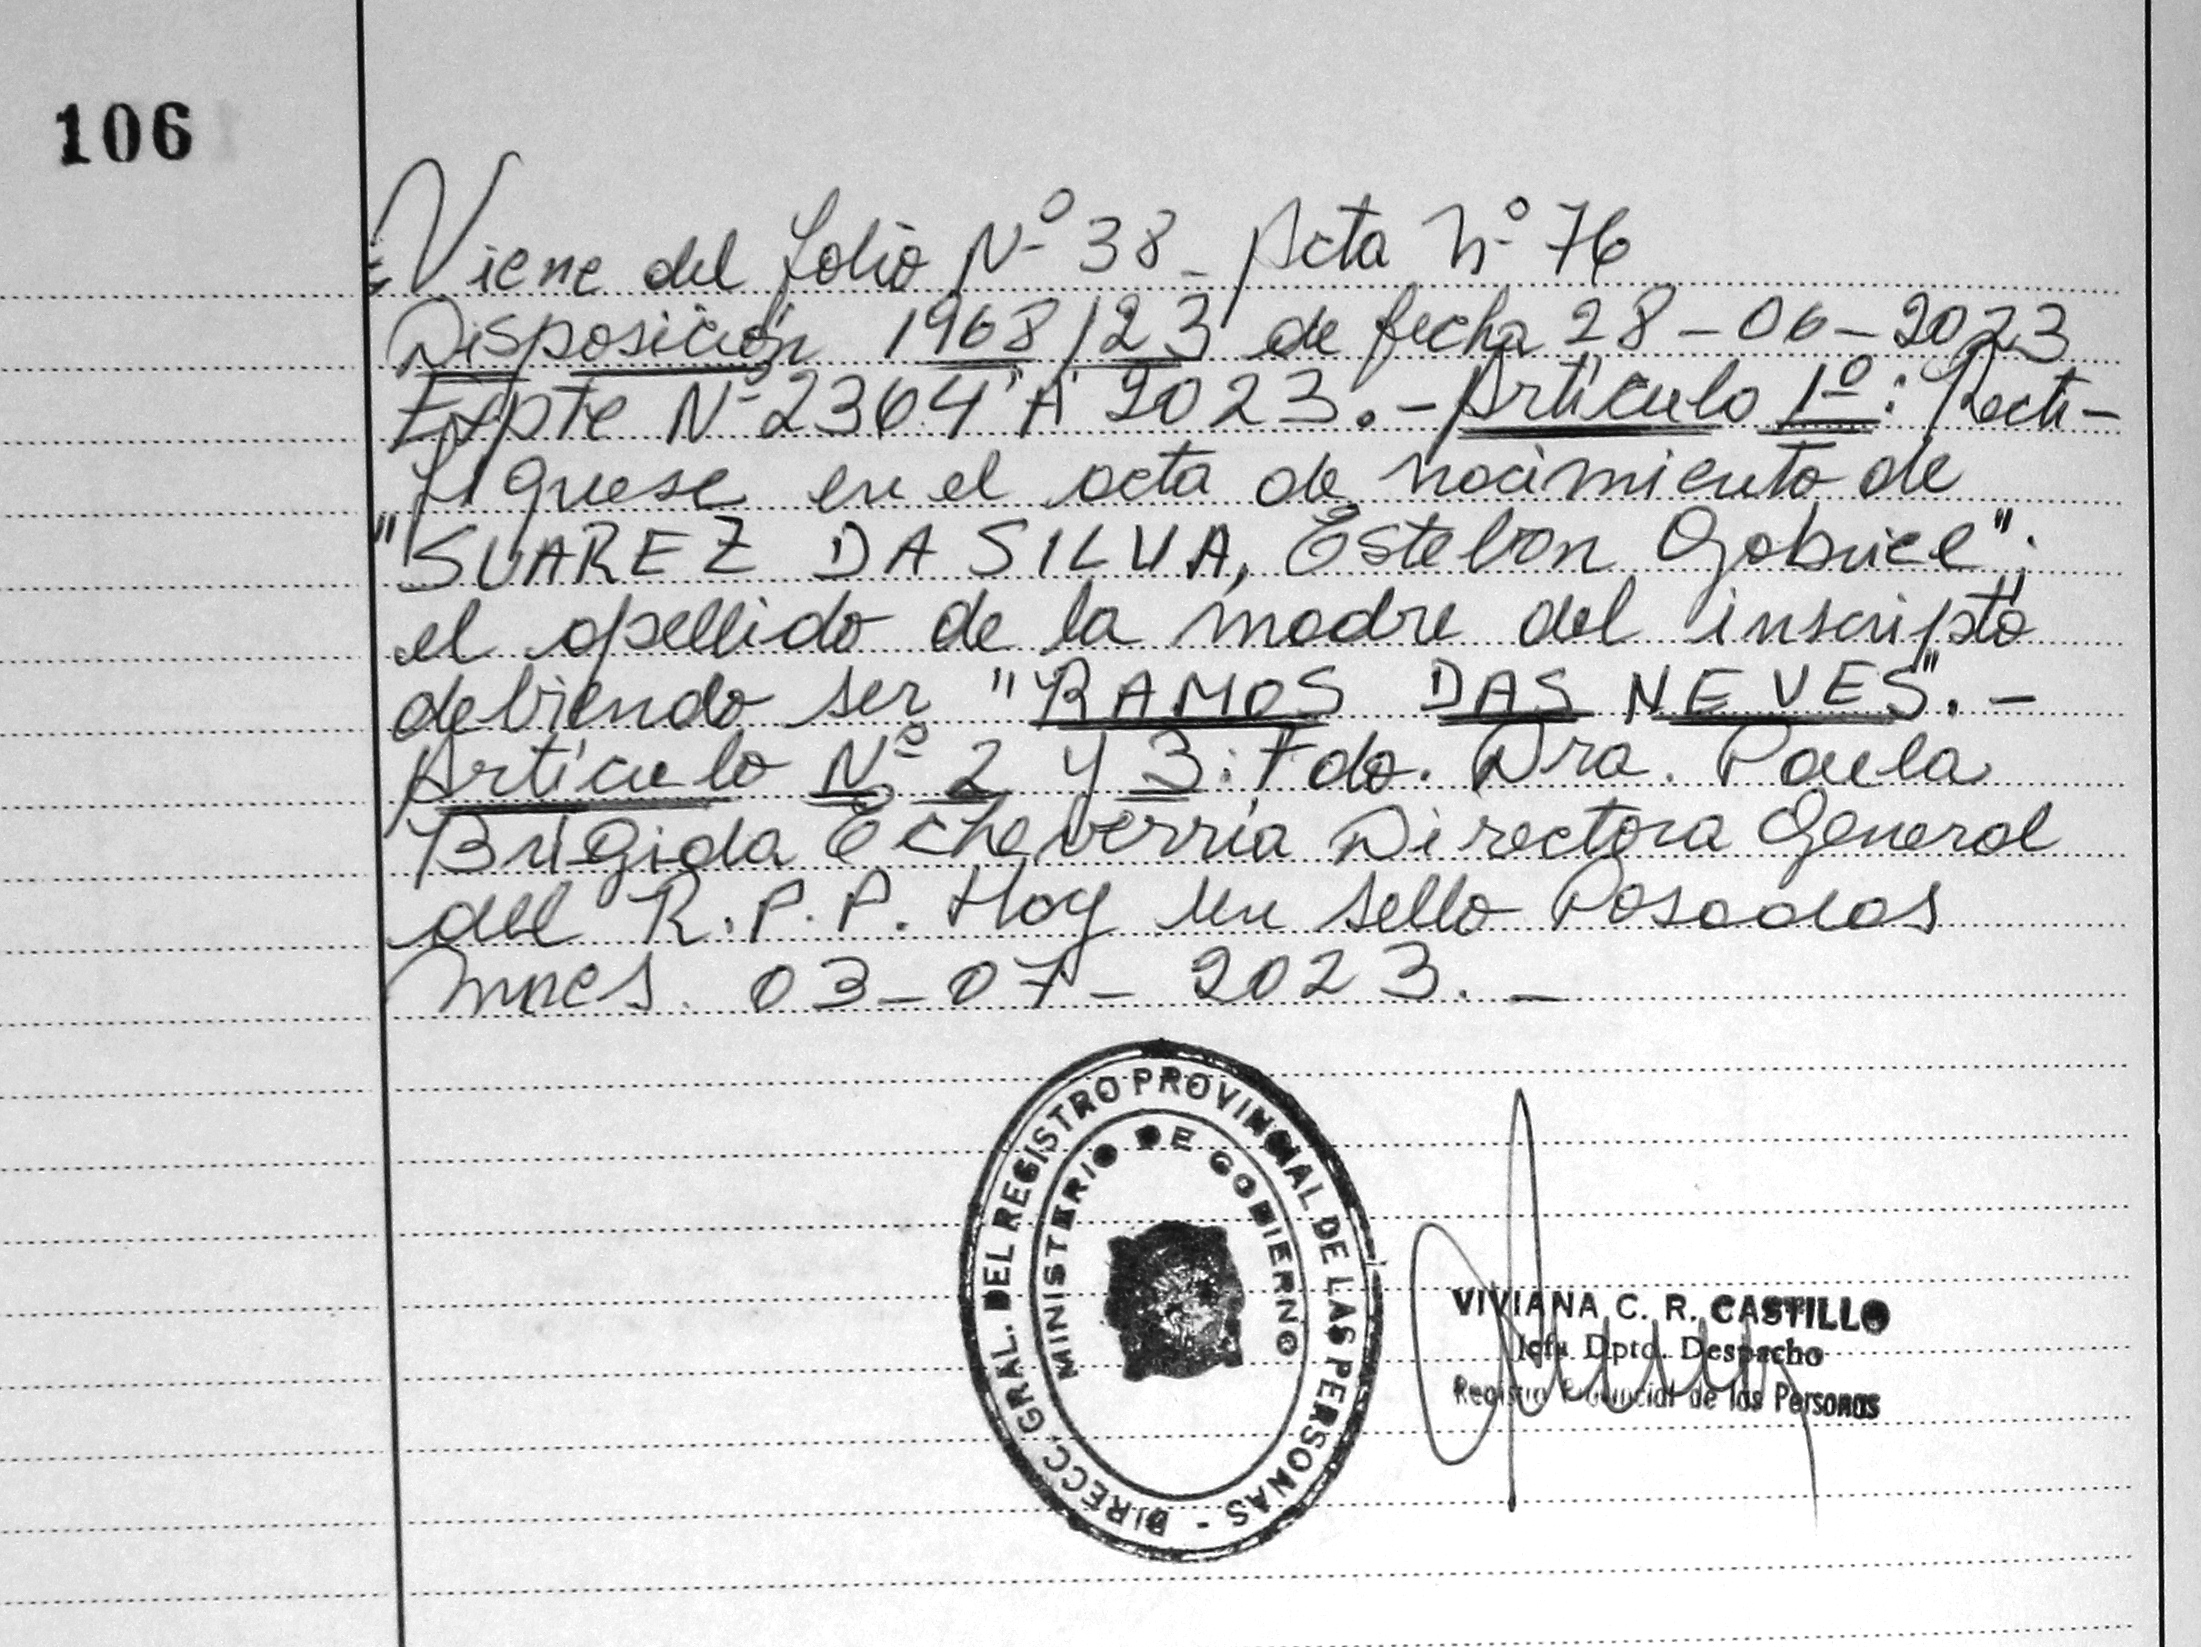 106
Viene del folio Nº 38 - Acta Nº 76
Disposición 1968/23 de fecha 28-06-2023
Expte Nº 2364"A" 2023.- Artículo 1º: Recti-
fíquese en el acta de nacimiento de
"SUAREZ DA SILVA, Esteban Gabriel";
el apellido de la madre del inscripto
debiendo ser "RAMOS DAS NEVES".-
Artículo Nº 2 y 3: Fdo. Dra. Paula
Brígida Echeverría Directora General
del R.P.P. Hay un sello Posadas
Mnes. 03-07-2023.-
DIRECC. GRAL. DEL REGISTRO PROVINCIAL DE LAS PERSONAS -
MINISTERIO DE GOBIERNO
VIVIANA C. R. CASTILLO
Jefa Dpto. Despacho
Registro Provincial de las Personas